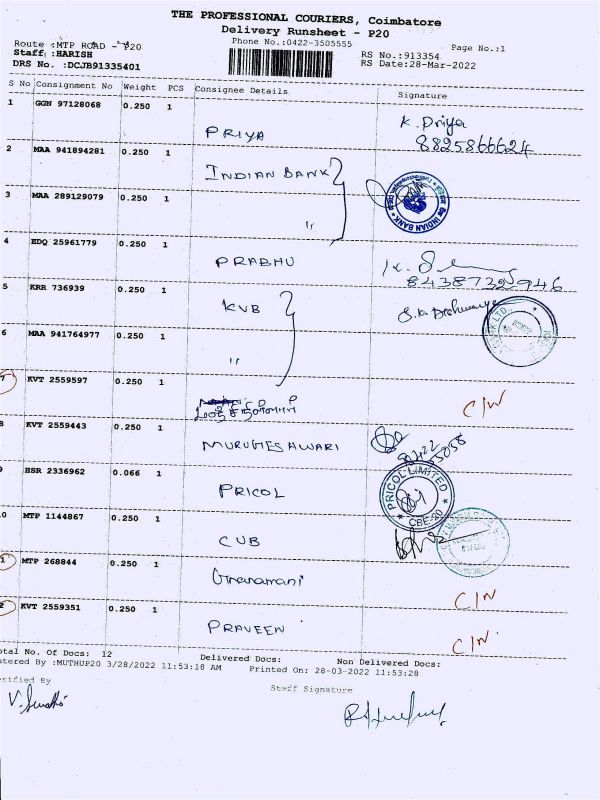 THE PROFESSIONAL COURIERS, Coimbatore
Delivery Runsheet - P20
Phone No.:0422-3505555
Page No.:1
Route :MTP ROAD - P20
Staff :HARISH
DRS No. :DCJB91335401
RS No.:913354
RS Date:28-Mar-2022
S No Consignment No Weight PCS Consignee Details Signature
1 GGN 97128068 0.250 1 PRIYA K. Priya
8825866624
2 MAA 941894281 0.250 1 INDIAN BANK
INDIAN BANK
3 MAA 289129079 0.250 1 "
4 EDQ 25961779 0.250 1 PRABHU
8438732946
5 KRR 736939 0.250 1 KVB
6 MAA 941764977 0.250 1 "
7 KVT 2559597 0.250 1 C/N
8 KVT 2559443 0.250 1 MURUGESHWARI
9 HSR 2336962 0.066 1 PRICOL
PRICOL LIMITED
CBE-20
10 MTP 1144867 0.250 1 CUB
11 MTP 268844 0.250 1 C/N
12 KVT 2559351 0.250 1 PRAVEEN C/N
Total No. Of Docs: 12 Delivered Docs: Non Delivered Docs:
Entered By :MUTHUP20 3/28/2022 11:53:18 AM Printed On: 28-03-2022 11:53:28
Verified By Staff Signature